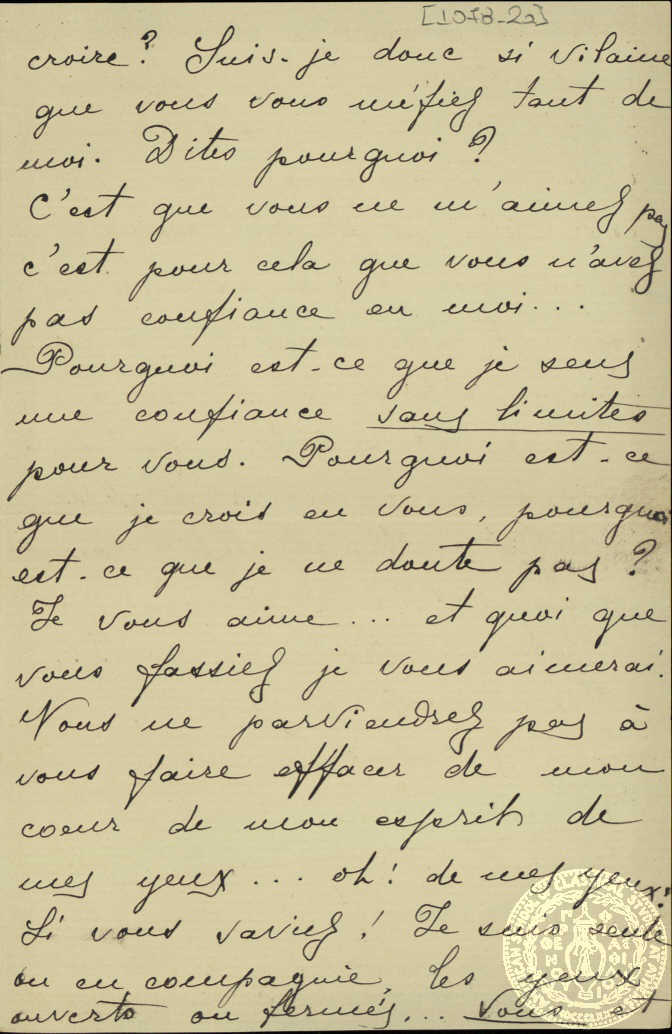 [1078-2a]
croire? Suis-je donc si vilaine
que vous vous méfiez tant de
moi. Dites pourquoi?
C'est que vous ne m'aimez pas
c'est pour cela que vous n'avez
pas confiance en moi...
Pourquoi est-ce que je sens
une confiance sans limites
pour vous. Pourquoi est-ce
que je crois en vous, pourquoi
est-ce que je ne doute pas?
Je vous aime... et quoi que
vous fassiez je vous aimerai.
Vous ne parviendrez pas à
vous faire effacer de mon
coeur de mon esprit de
mes yeux... oh! de mes yeux!
Si vous saviez! Je suis seule
ou en compagnie, les yeux
ouverts ou fermés... vous et